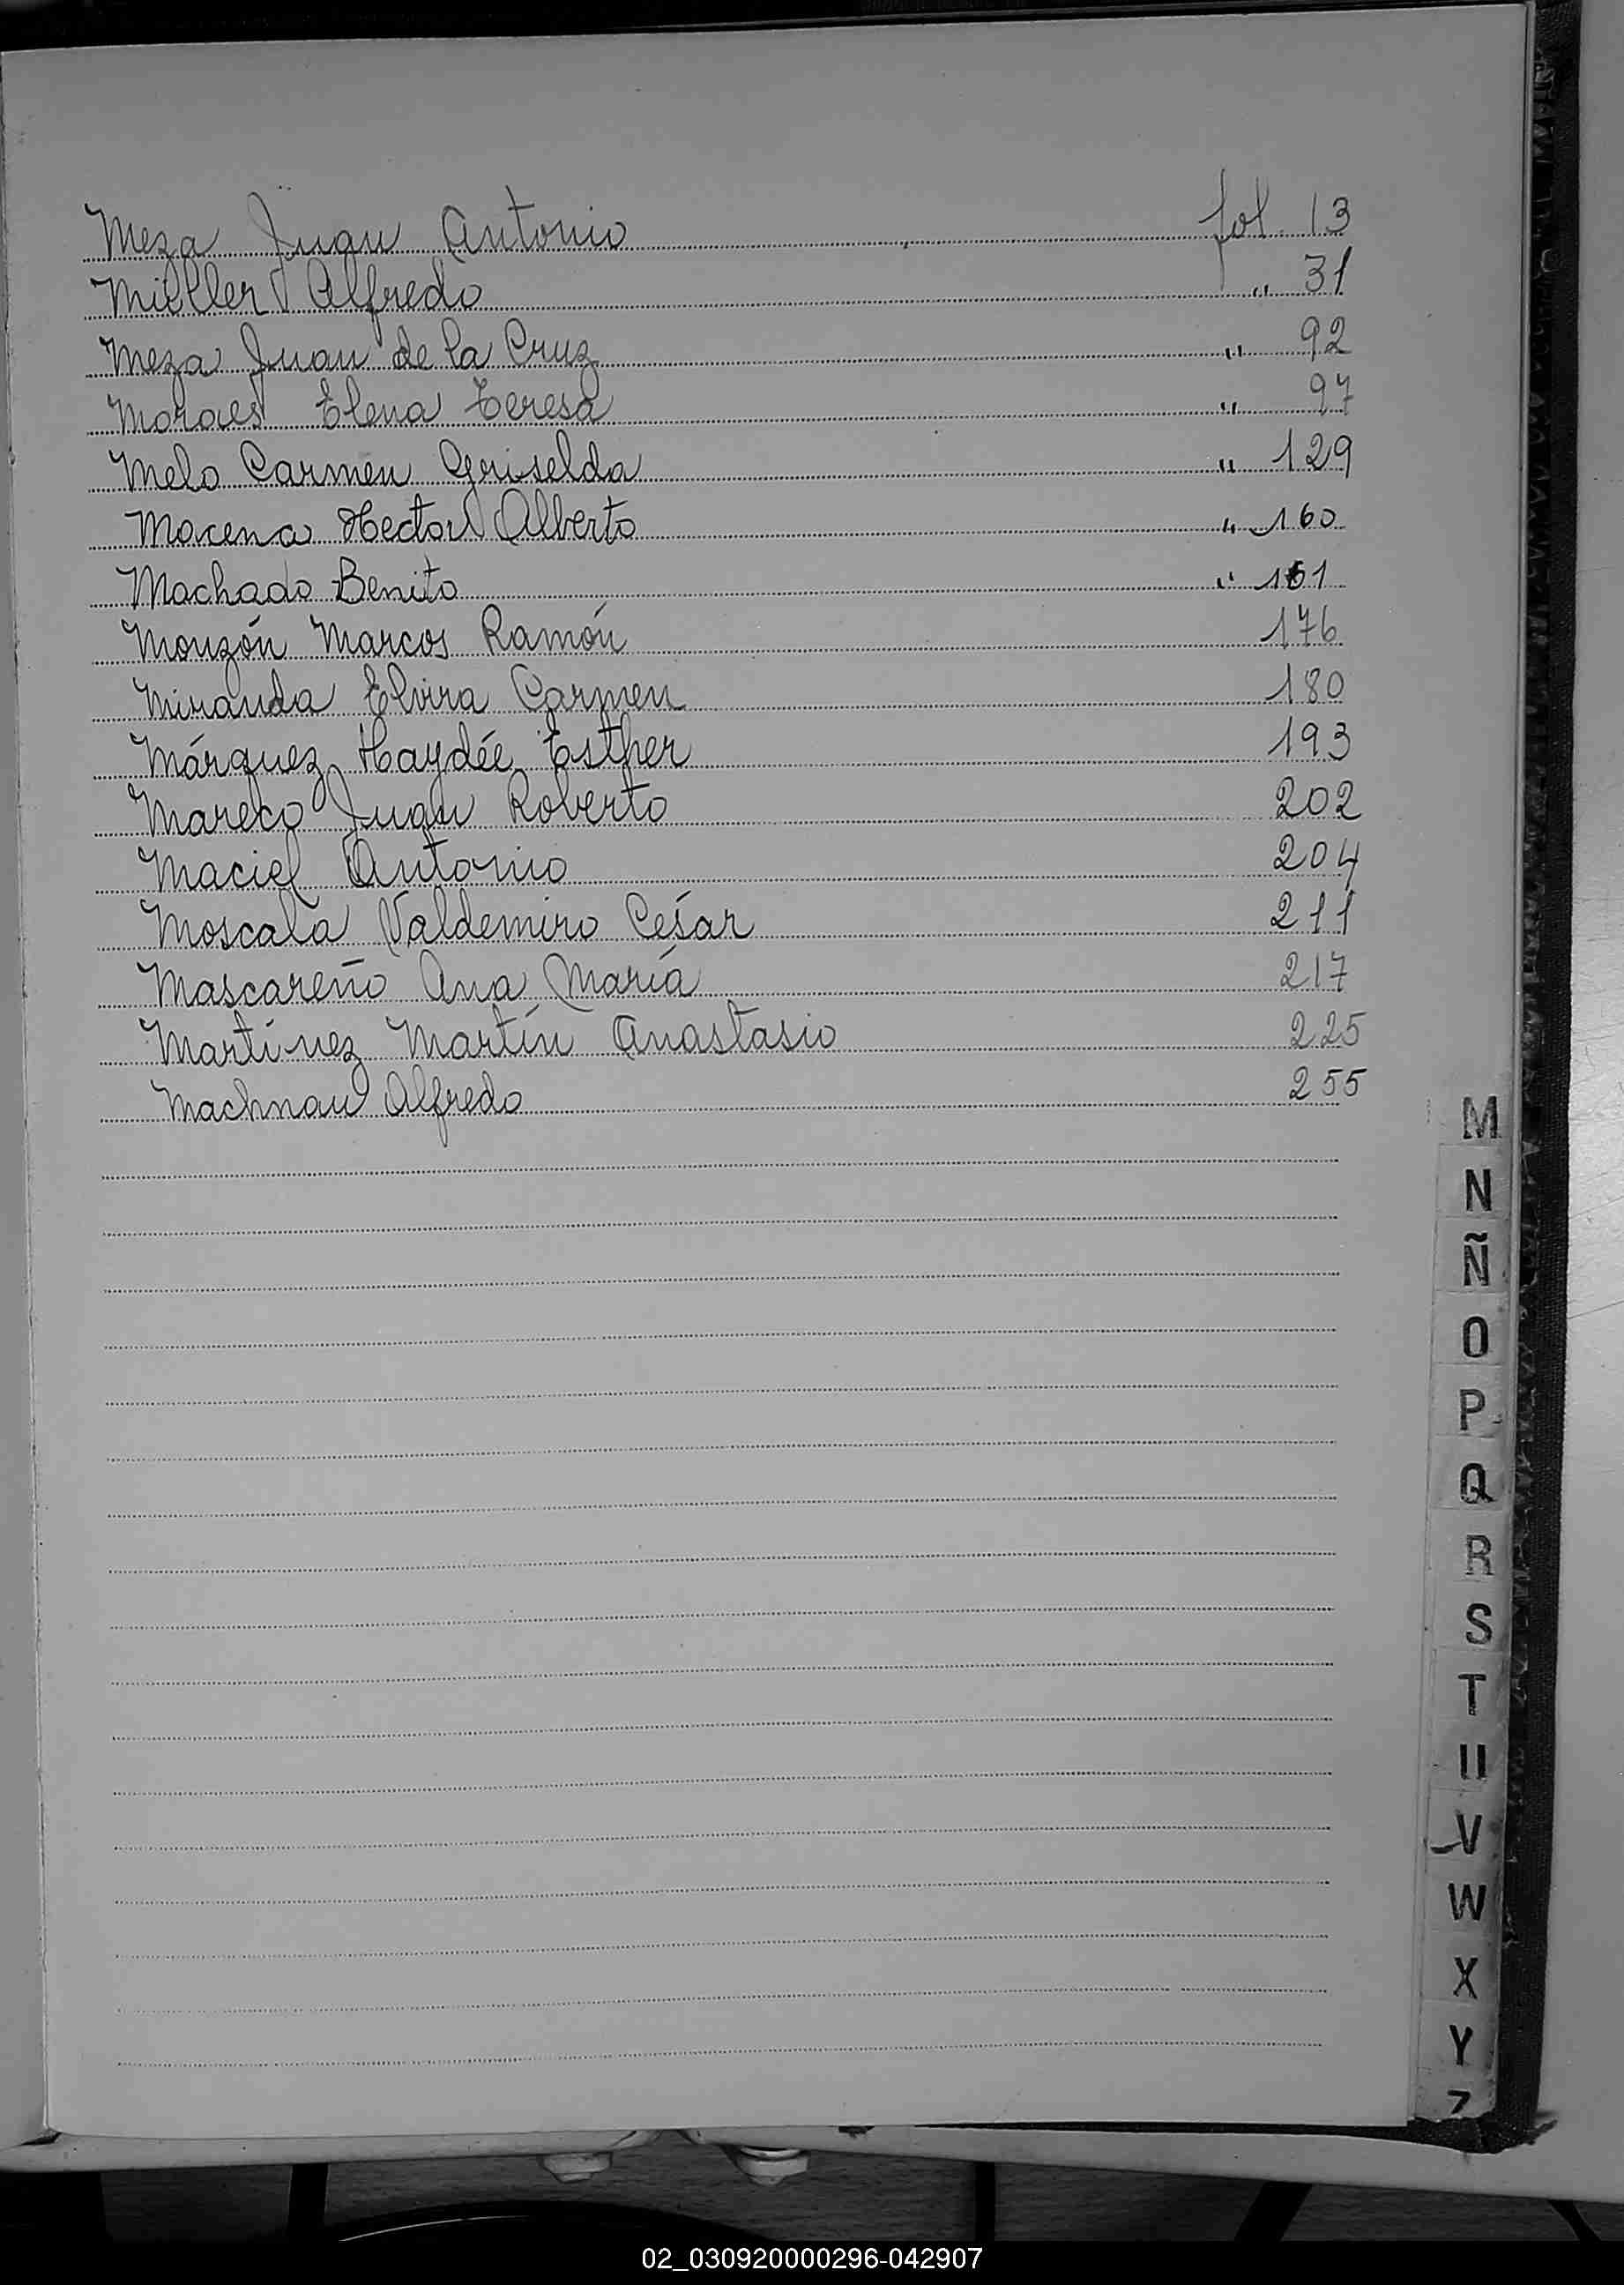 Meza Juan Antonio fol. 13
Miller Alfredo " 31
Meza Juan de la Cruz " 92
Moraes Elena Teresa " 97
Melo Carmen Griselda " 129
Macena Hector Alberto " 160
Machado Benito " 161
Monzón Marcos Ramón 176
Miranda Elvira Carmen 180
Márquez Haydée Esther 193
Mareco Juan Roberto 202
Maciel Antonio 204
Moscala Valdemiro César 211
Mascareño Ana María 217
Martínez Martín Anastasio 225
Machnau Alfredo 255
M
N
Ñ
O
P
Q
R
S
T
U
V
W
X
Y
Z
02_030920000296-042907